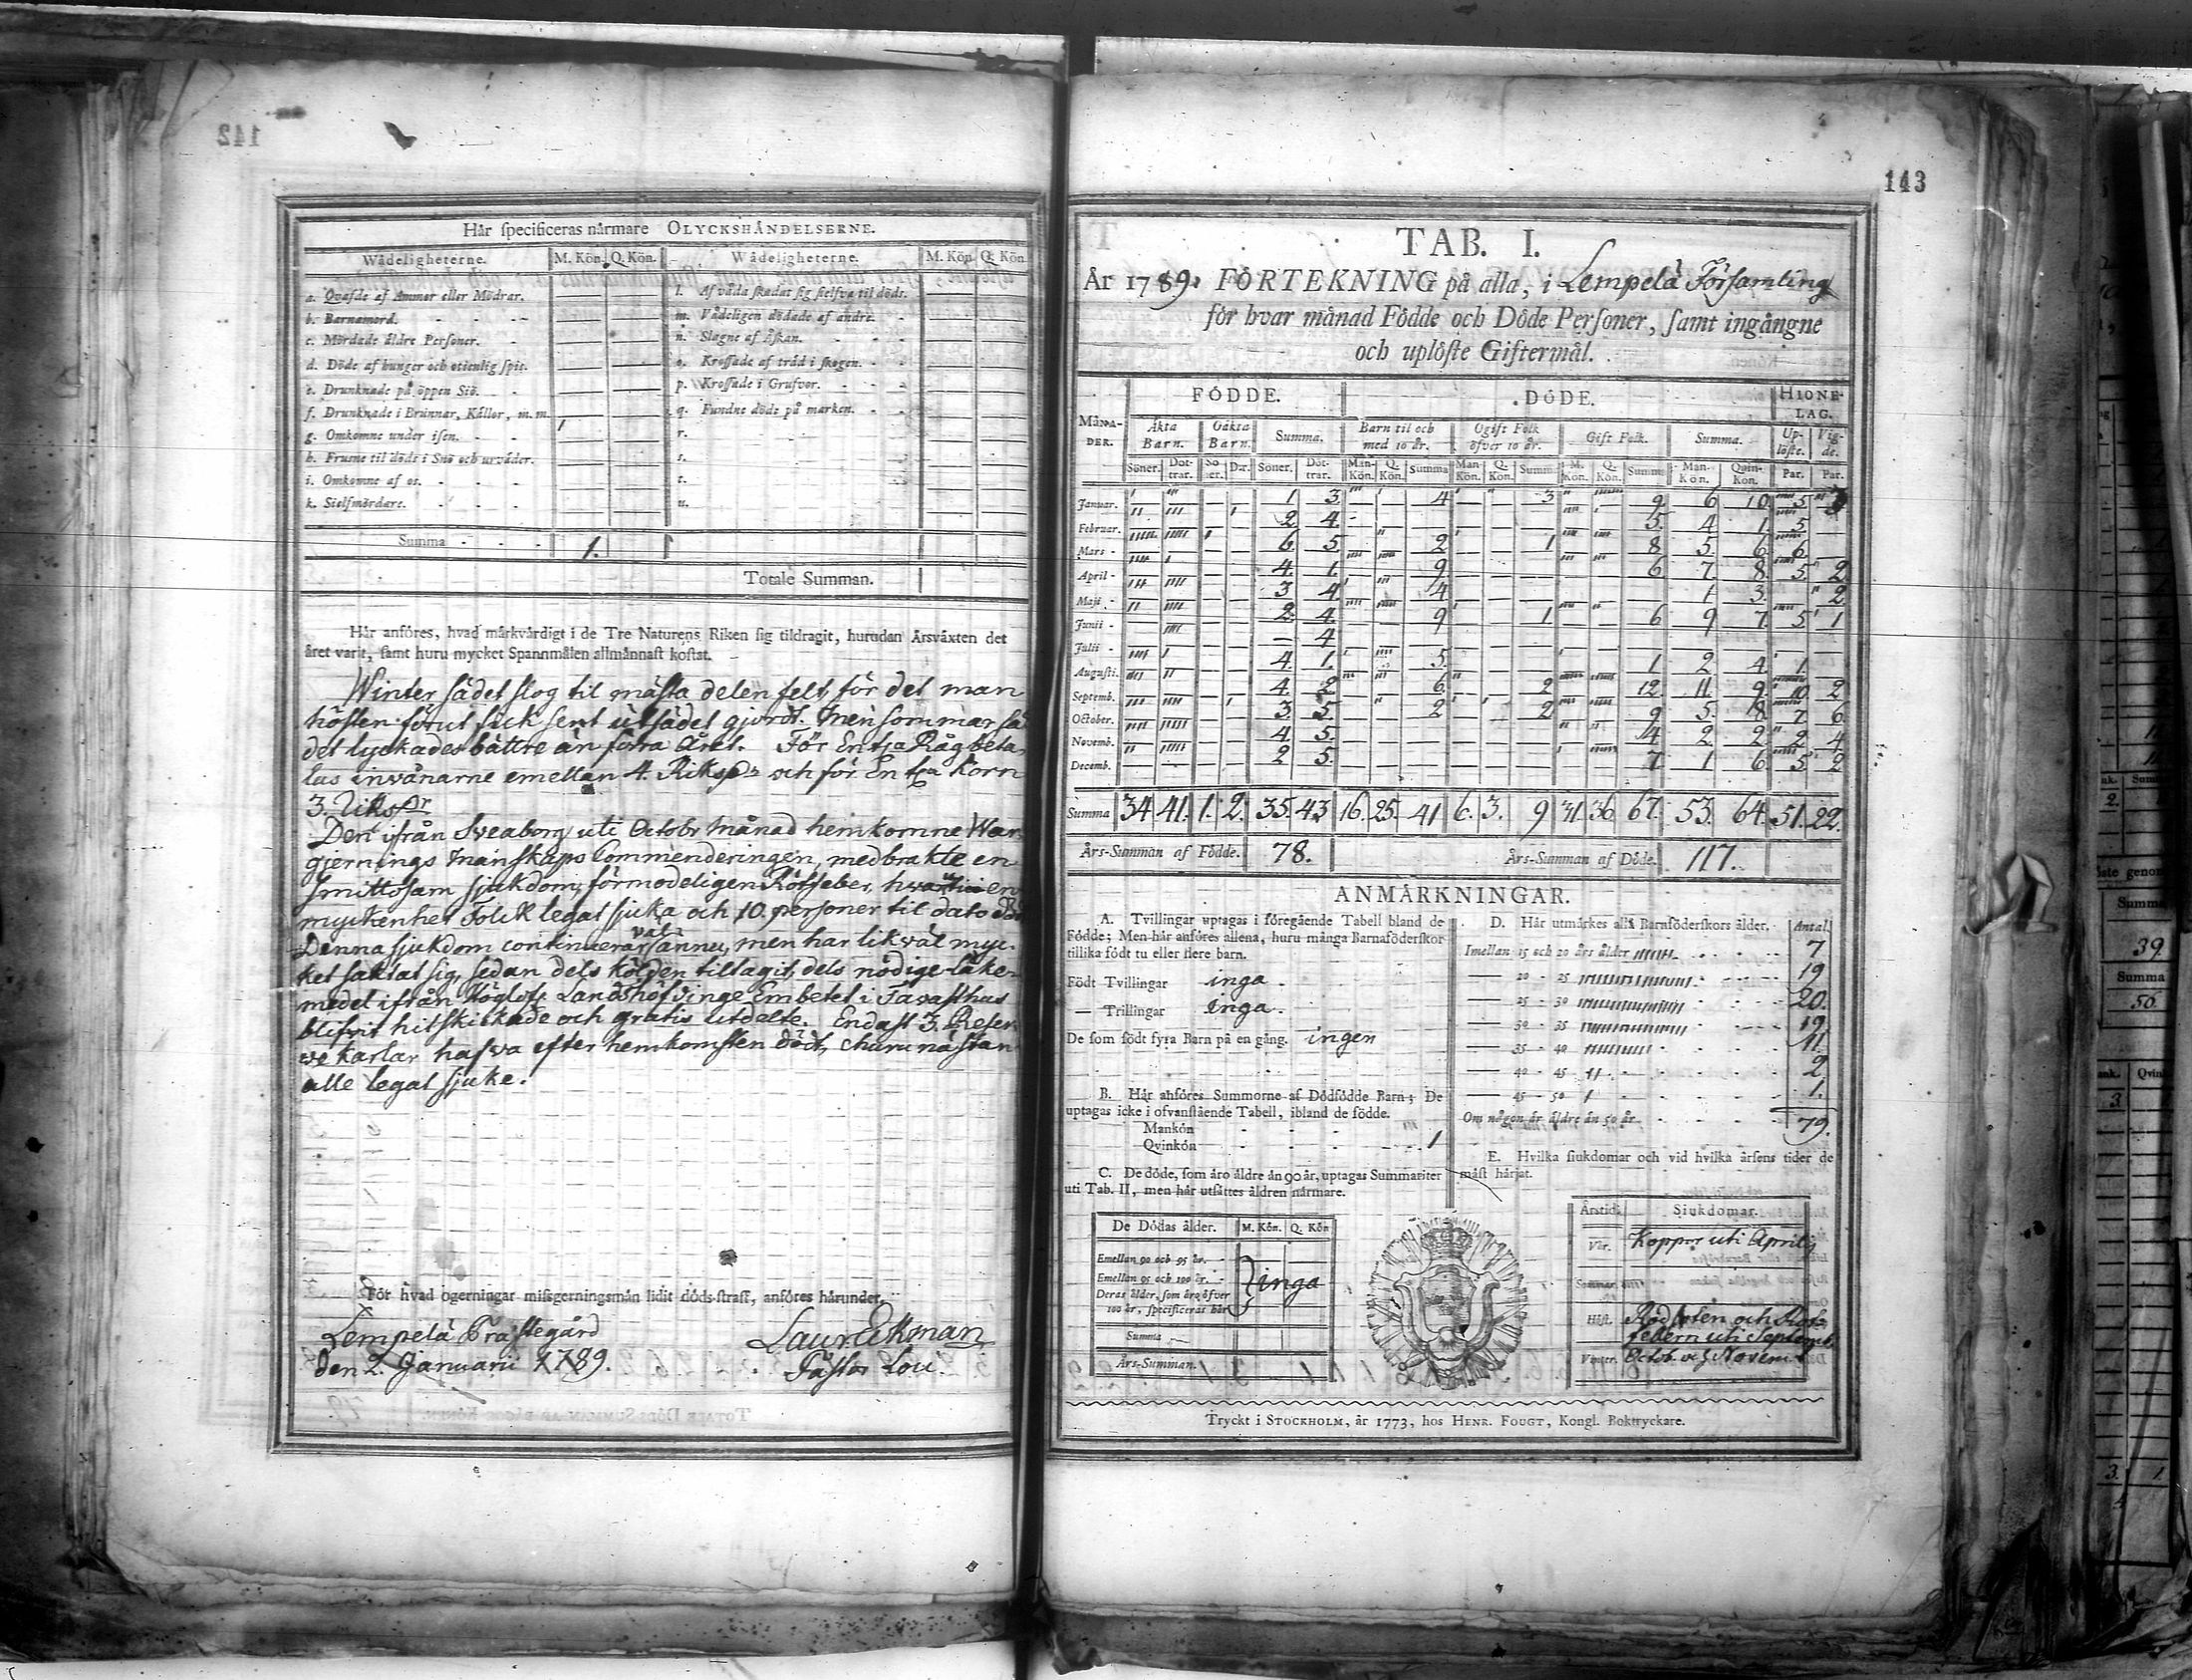 143
Här specificeras närmare OLYCKSHÄNDELSERNE.
Wådeligheterne. M. Kön. Q. Kön. Wådeligheterne. M. Kön. Q. Kön.
a. Qvafde af Ammor eller Mödrar. — — l. Af våda skadat sig sielfva til döds. — —
b. Barnamord. — — m. Vådeligen dödade af andre. — —
c. Mördade äldre Personer. — — n. Slagne af Åskan. — —
d. Döde af hunger och otienlig spis. — — o. Krossade af träd i skogen. — —
e. Drunknade på öppen Siö. — — p. Krossade i Grufvor. — —
f. Drunknade i Brunnar, Källor, m. m. — — q. Fundne döde på marken. — —
g. Omkomne under isen. r.
h. Frusne til döds i Snö och urväder. — — s.
i. Omkomne af os. — — t.
k. Sielfmördare. — — u.
Summa 1.
Totale Summan.
Här anföres, hvad märkvärdigt i de Tre Naturens Riken sig tildragit, hurudan Årsväxten det
året varit, samt huru mycket Spannmålen allmännast kostat.
Winter sädet slog til mästa delen felt, för det man
hösten förut fick sent utsädet gjordt. Men sommar sä
det lyckades bättre än förra Året. För En t:a Råg beta
las invånarne emellan 4. Riksd:r och för En t:a Korn
3. Riksd:r
Den ifrån Sveaborg uti Octobr Månad hemkomne War
gjernings Manskaps Commenderingen, medbrakte en
smittosam sjukdom, förmodeligen Rötfeber, en
myckenhet Folck legat sjuka och 10 personer til dato död
Denna sjukdom continuerar väl ännu, men har likwäl myc
ket saktat sig, sedan dels kölden tiltagit, dels nödige läke
medel ifrån Höglofl. Landshöfdinge Embetet i Tavasthus
blifvit hitskickade och gratis utdelte. Endast 3. Reser
ve karlar hafva efter hemkomsten dödt, churu nästan
alle legat sjuke.
För hvad ogerningar missgerningsmän lidit döds-straff, anföres härunder.
Lempelä Prästegård
den 2. Januarii 1789.
Laur Eckman
Pastor Loci.
TAB. I.
År 1789. FÖRTEKNING på alla, i Lempelä Församling
för hvar månad Födde och Döde Personer, samt ingångne
och uplöste Giftermål.
FÖDDE. DÖDE. HIONE-LAG.
MÅNADER. Äkta Barn. Oäkta Barn. Summa. Barn til och med 10 år. Ogift Folk öfver 10 år. Gift Folk. Summa. Up-löste. Vig-de.
Söner. Döt-trar. Sö ner. D:r. Söner. Döt-trar. Man-Kön. Q. Kön. Summa Man-Kön. Q. Kön. Summa M. Kön. Q. Kön. Summa Man-Kön. Quin-Kön. Par. Par.
Januar. 1 3 4 3 9 6 10 5
Februar. 2 4 5 4 1 5
Mars 6 5 2 1 8 5 6 6
April 4 1 9 6 7 8 5 2
Maji 3 4 4 1 3 2
Junii 2 4 9 1 6 9 7 5 1
Julii — 4
Augusti. 4 1 5 1 2 4 1
Septemb. 4 2 6 2 12 11 9 10 2
October. 3 5 2 2 9 5 8 7 6
Novemb. 4 5 4 2 2 2 4
Decemb. 2 5 7 1 6 5 2
Summa 34 41. 1. 2. 35. 43 16. 25. 41 6. 3. 9 31 36 67. 53. 64. 51. 22.
Års-Summan af Födde. 78. Års-Summan af Döde. 117.
ANMÄRKNINGAR.
A. Tvillingar uptagas i föregående Tabell bland de
Födde; Men här anföres allena, huru många Barnaföderskor
tillika födt tu eller flere barn.
Födt Tvillingar inga.
— Trillingar inga.
De som födt fyra Barn på en gång. ingen
B. Här anföres Summorne af Dödfödde Barn; De
uptagas icke i ofvanstående Tabell, ibland de födde.
Mankön
Qvinkön 1
C. De döde, som äro äldre än 90 år, uptagas Summariter
uti Tab. II, men här utsättes åldren närmare.
De Dödas ålder. M. Kön. Q. Kön
Emellan 90 och 95 år.
Emellan 95 och 100 år. inga
Deras ålder, som äro öfver
100 år, specificeras här
Summa
Års-Summan.
D. Här utmärkes alla Barnföderskors ålder. Antal
Imellan 15 och 20 års ålder 7
— 20 - 25 19
— 25 - 30 20.
— 30 - 35 19
— 35 - 40 11.
— 40 - 45 2
— 45 - 50 1.
Om någon är äldre än 50 år 79.
E. Hvilka siukdomar och vid hvilka årsens tider de
mäst härjat.
Årstid. Siukdomar.
Vår. Koppor uti Aprilis
Sommar.
Höst. Rödsoten och Röt-
febern uti Septemb.
Vinter. Octob. och Novemb.
Tryckt i STOCKHOLM, år 1773, hos HENR. FOUGT, Kongl. Boktryckare.